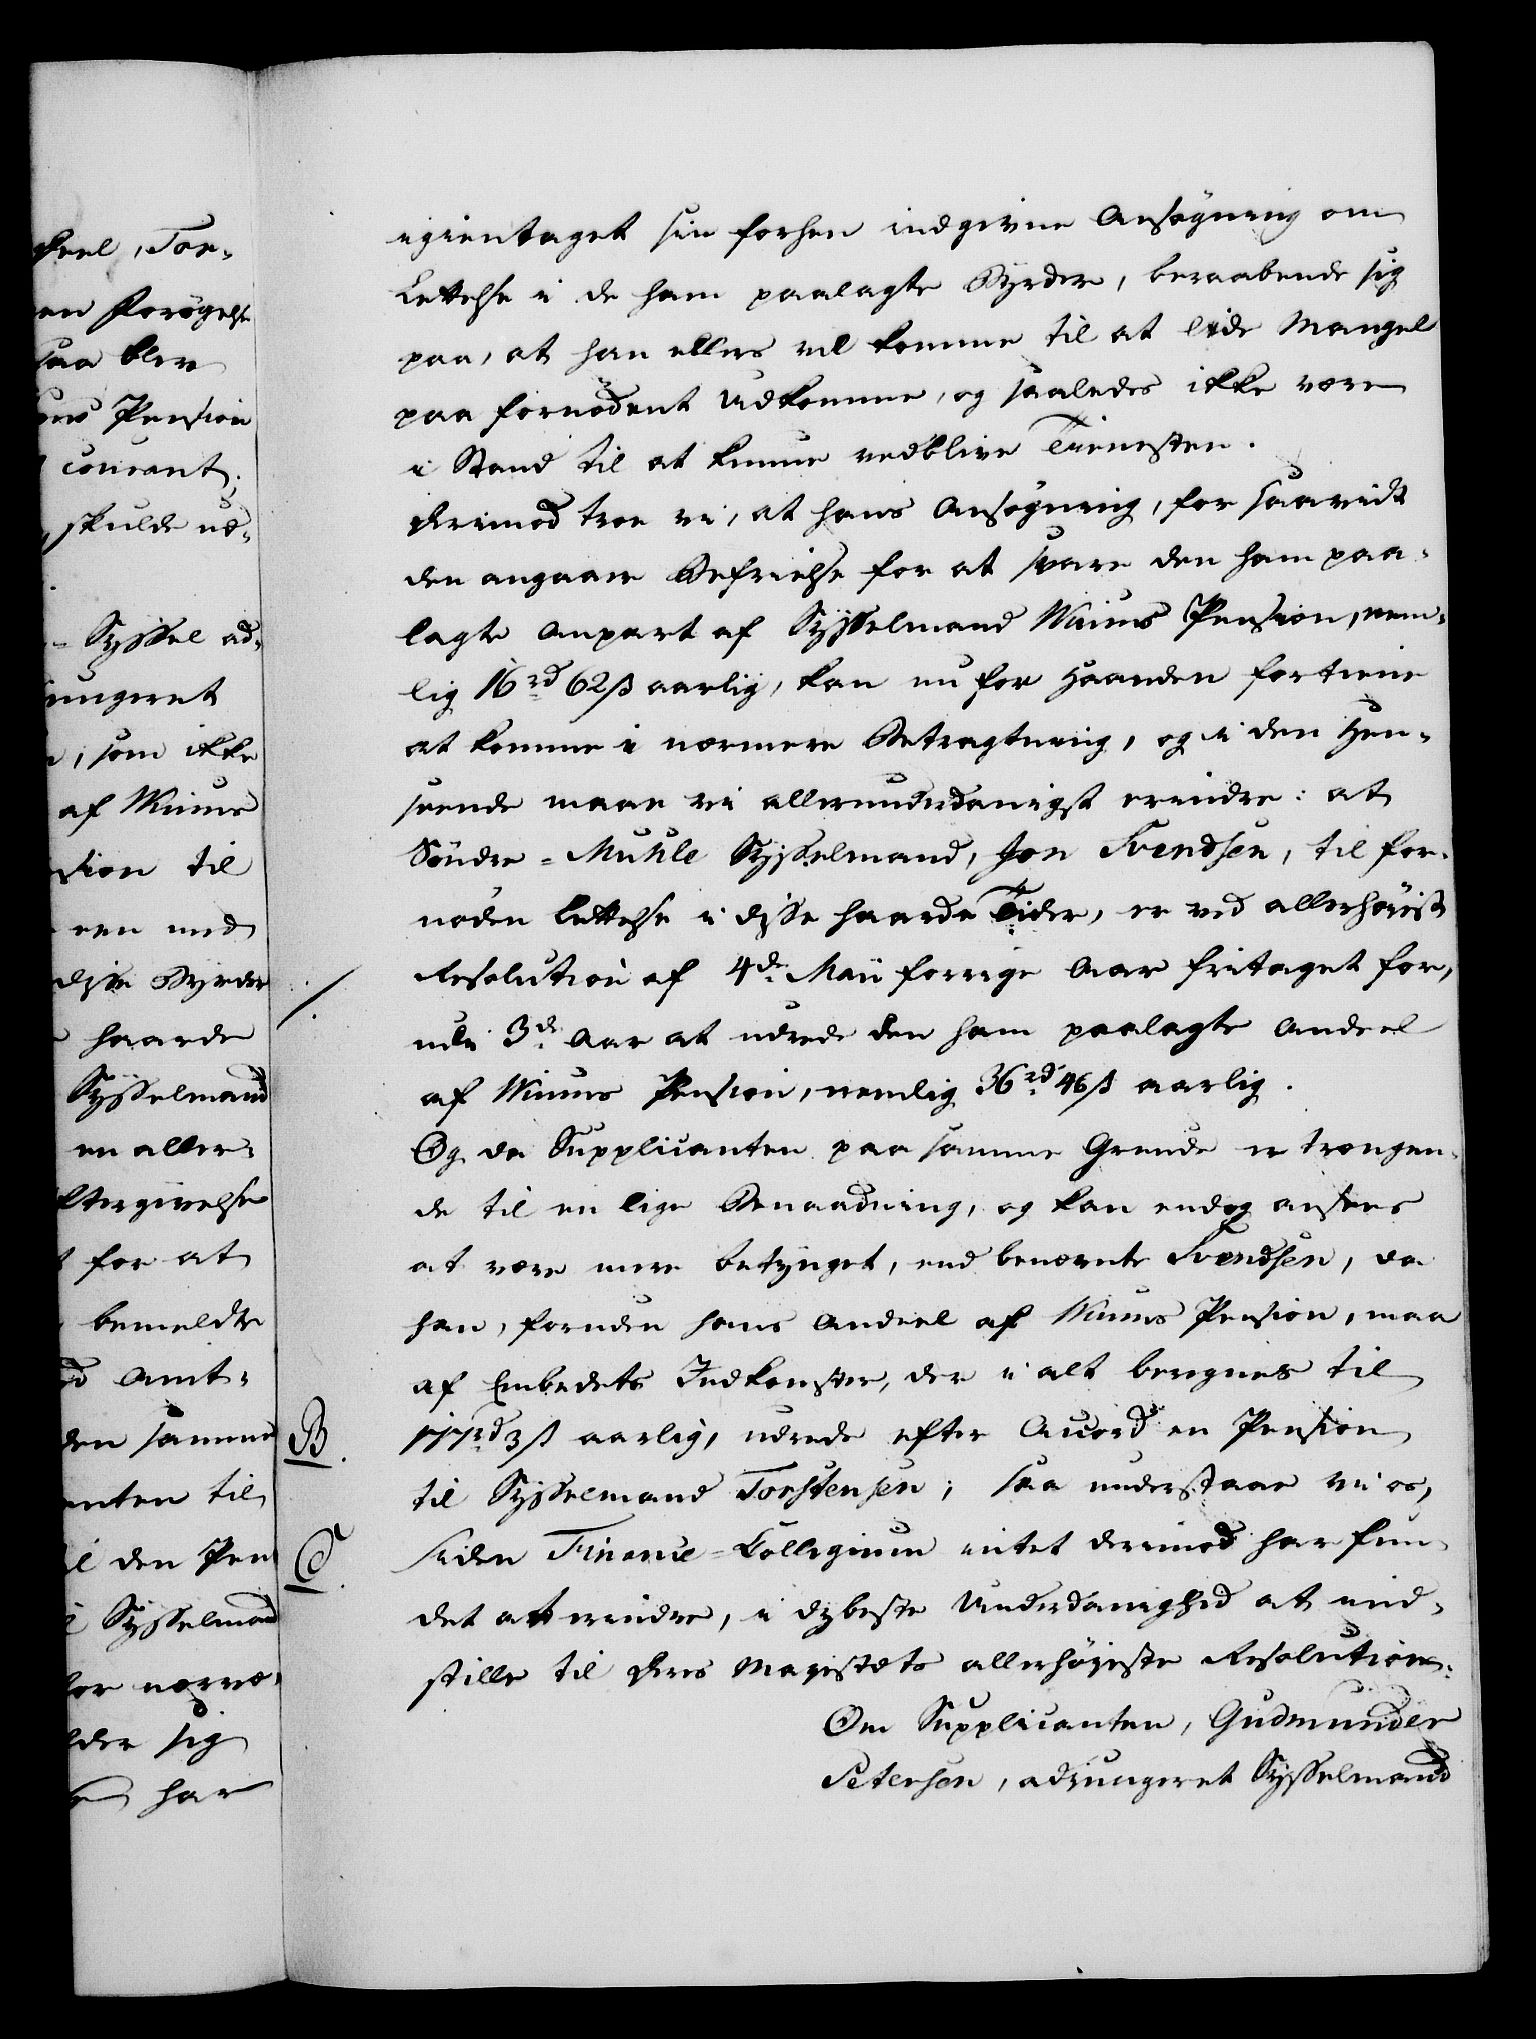 deel, Tor-
en Forøgelse
saa blev
ons Pension
courant;
, skulde ud-
- Syssel ad-
jungeret
, som ikke
af Wiums
sion til
een med
disse Byrder
haarde
Sysselmand
en aller-
ftergivelse
for at
bemeldte
Amt-
den samme
anten til
il den Pen
Sysselmand
for nærvæ-
lder sig
har
igientaget sin forhen indgivne Ansøgning om
Lettelse i de ham paalagte Byrder, beraabende sig
paa, at han ellers vil komme til at lide Mangel
paa fornødent Udkomme, og saaledes ikke være
i Stand til at kunne vedblive Tienesten.
Derimod troe vi, at hans Ansøgning, for saavidt
den angaaer Befrielse for at svare den ham paa-
lagte Anpart af Sysselmand Wiums Pension, nem-
lig 16rd 62ß aarlig, kan nu for Haanden fortiene
at komme i nærmere Betragtning, og i den Hen-
seende maae vi allerunderdanigst erindre: at
Söndre-Muhle Sysselmand, Jon Svendsen, til for-
nøden Lettelse i disse haarde Tider, er ved allerhøiest
Resolution af 4de Maii forrige Aar fritaget for,
udi 3de Aar at udrede den ham paalagte Andeel
af Wiums Pension, nemlig 36rd 46ß aarlig.
Og da Supplicanten paa samme Grunde er trængen-
de til en lige Benaadning, og kan endog ansees
at være mere betynget, end benævnte Svendsen, da
han, foruden hans Andeel af Wiums Pension, maa
af Embedets Indkomster, der i alt beregnes til
B. 177rd 3ß aarlig, udrede efter Accord en Pension
til Sysselmand Torstensen; saa understaae vi os,
C. siden Finance-Collegium intet derimod har fun-
det at erindre, i dybeste Underdanighed at ind-
stille til Deres Majestæts allerhøjeste Resolution:
Om Supplicanten, Gudmunder
Petersen, adjungeret Sysselmand